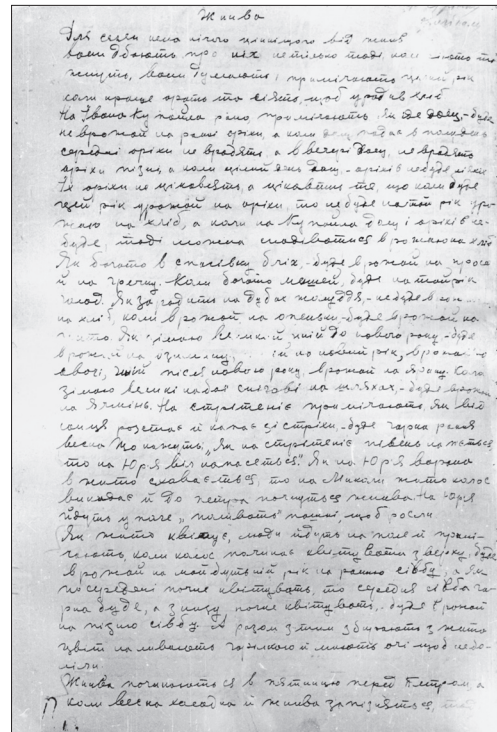 Жнива
Для селян нема нічого ціннішого від жнив
вони дбають про них не тільки тоді, коли жито
жнуть, вони думають і примічають цілий рік
коли краще орать та сіять, щоб уродив хліб
На Івана Купайла рано примічають, як йде дощ, - буде
неврожай на ранні оріхи, а коли дощ падає в полудень
середні оріхи не вродять, а в вечері дощ, не вродять
оріхи пізні, а коли цілий день дощ, - оріхів не буде
Їх оріхи не цікавлять, а цікавить те, що коли буде
цей рік урожай на оріхи, то не буде на той рік уро-
жаю на хліб, а коли на Купайла дощ і оріхів не-
буде, тоді можна сподіватися врожаю на хліб
Як богато в спасівку бліх, - буде врожай на просо
й на гречку. Коли богато мишей, буде на той рік
голод. Як загодить на дубах жолуддя, - не буде
на хліб, коли врожай на опеньки - буде врожай на
жито. Як зімою великий иній до нового року - буде
врожай на озимину, на новий рік, врожай
иній після нового року, врожай на ярину. Коли
зімою великі набої снігові на шляхах, - буде врожай
на ячмінь. На стрітеніє примічають, як від
сонця розтає й капає зі стріхи, - буде гарна рання
весна. Що кажуть: "Як на стрітеніє півень нап'ється
то на Юр'я віл напасеться". Як на Юр'я ворона
в жито сховається, то на Миколи жито колос
викидає й до петра почнуться жнива. На Юр'я
йдуть у поле "поливать" пашні, щоб росли
Як жито квітує, люди йдуть на поле й примі-
чають, коли колос починає квітувати з верху, буде
врожай на майбутній рік на ранню сівбу, а як
по середені почне квітувать, то середня сівба га-
рна буде, а з низу почне квітувать, - буде врожай
на пізню сівбу. А разом з тим збирають з жита
цвіт наливають горілкою й миють очі щоб не бо-
ліли.
Жнива починаються в пятницю перед Петром, а
коли весна холодна й жнива запізняться,